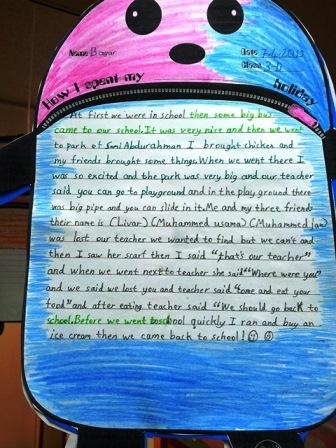 Name: Bawar
Date 7/20/2023
Class 3-H
How I spent my holiday
At first we were in school then some big bus
came to our school.It was very nice and then we went
to park of Sami Abdurahman I brought chicken and
my friends brought some things.When we went there I
was so excited and the park was very big and our teacher
said you can go to playground and in the play ground there
was big pipe and you can slide in it.Me and my three friends
their name is (Livar) (Muhammed usama) (Muhammed
was lost our teacher we wanted to find but we can't and
then I saw her scarf then I said "that's our teacher"
and when we went next to teacher she said "Where were you"
and we said we lost you and teacher said "come and eat your
food" and after eating teacher said "We should go back to
school.Before we went to school quickly I ran and buy an
ice cream then we came back to school!